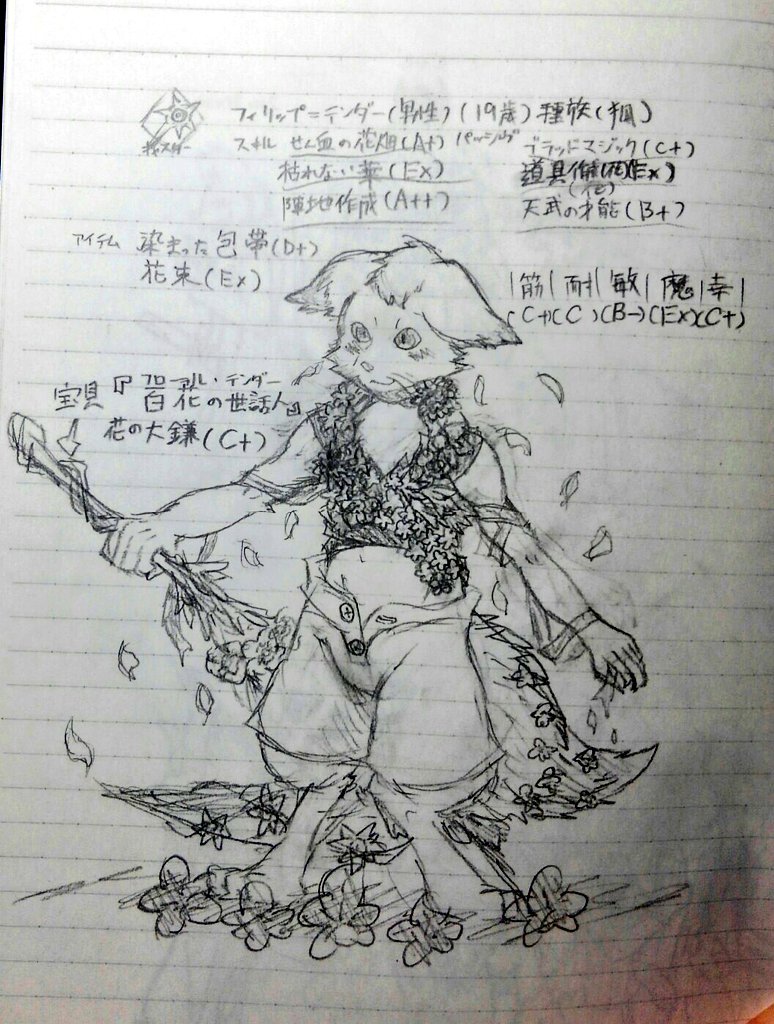 フィリップ=テンダー(男性)(19歳)種族(狐)
キャスター
スキル せん血の花畑(A+) パッシブ ブラッドマジック(C+)
枯れない華(Ex) 道具作成(花)(Ex)
(花)
陣地作成(A++) 天武の才能(B+)
アイテム 染まった包帯(D+)
花束(Ex)
|筋|耐|敏|魔|幸|
(C+)(C)(B-)(Ex)(C+)
フローラル・テンダー
宝具『百花の世話人』
花の大鎌(C+)